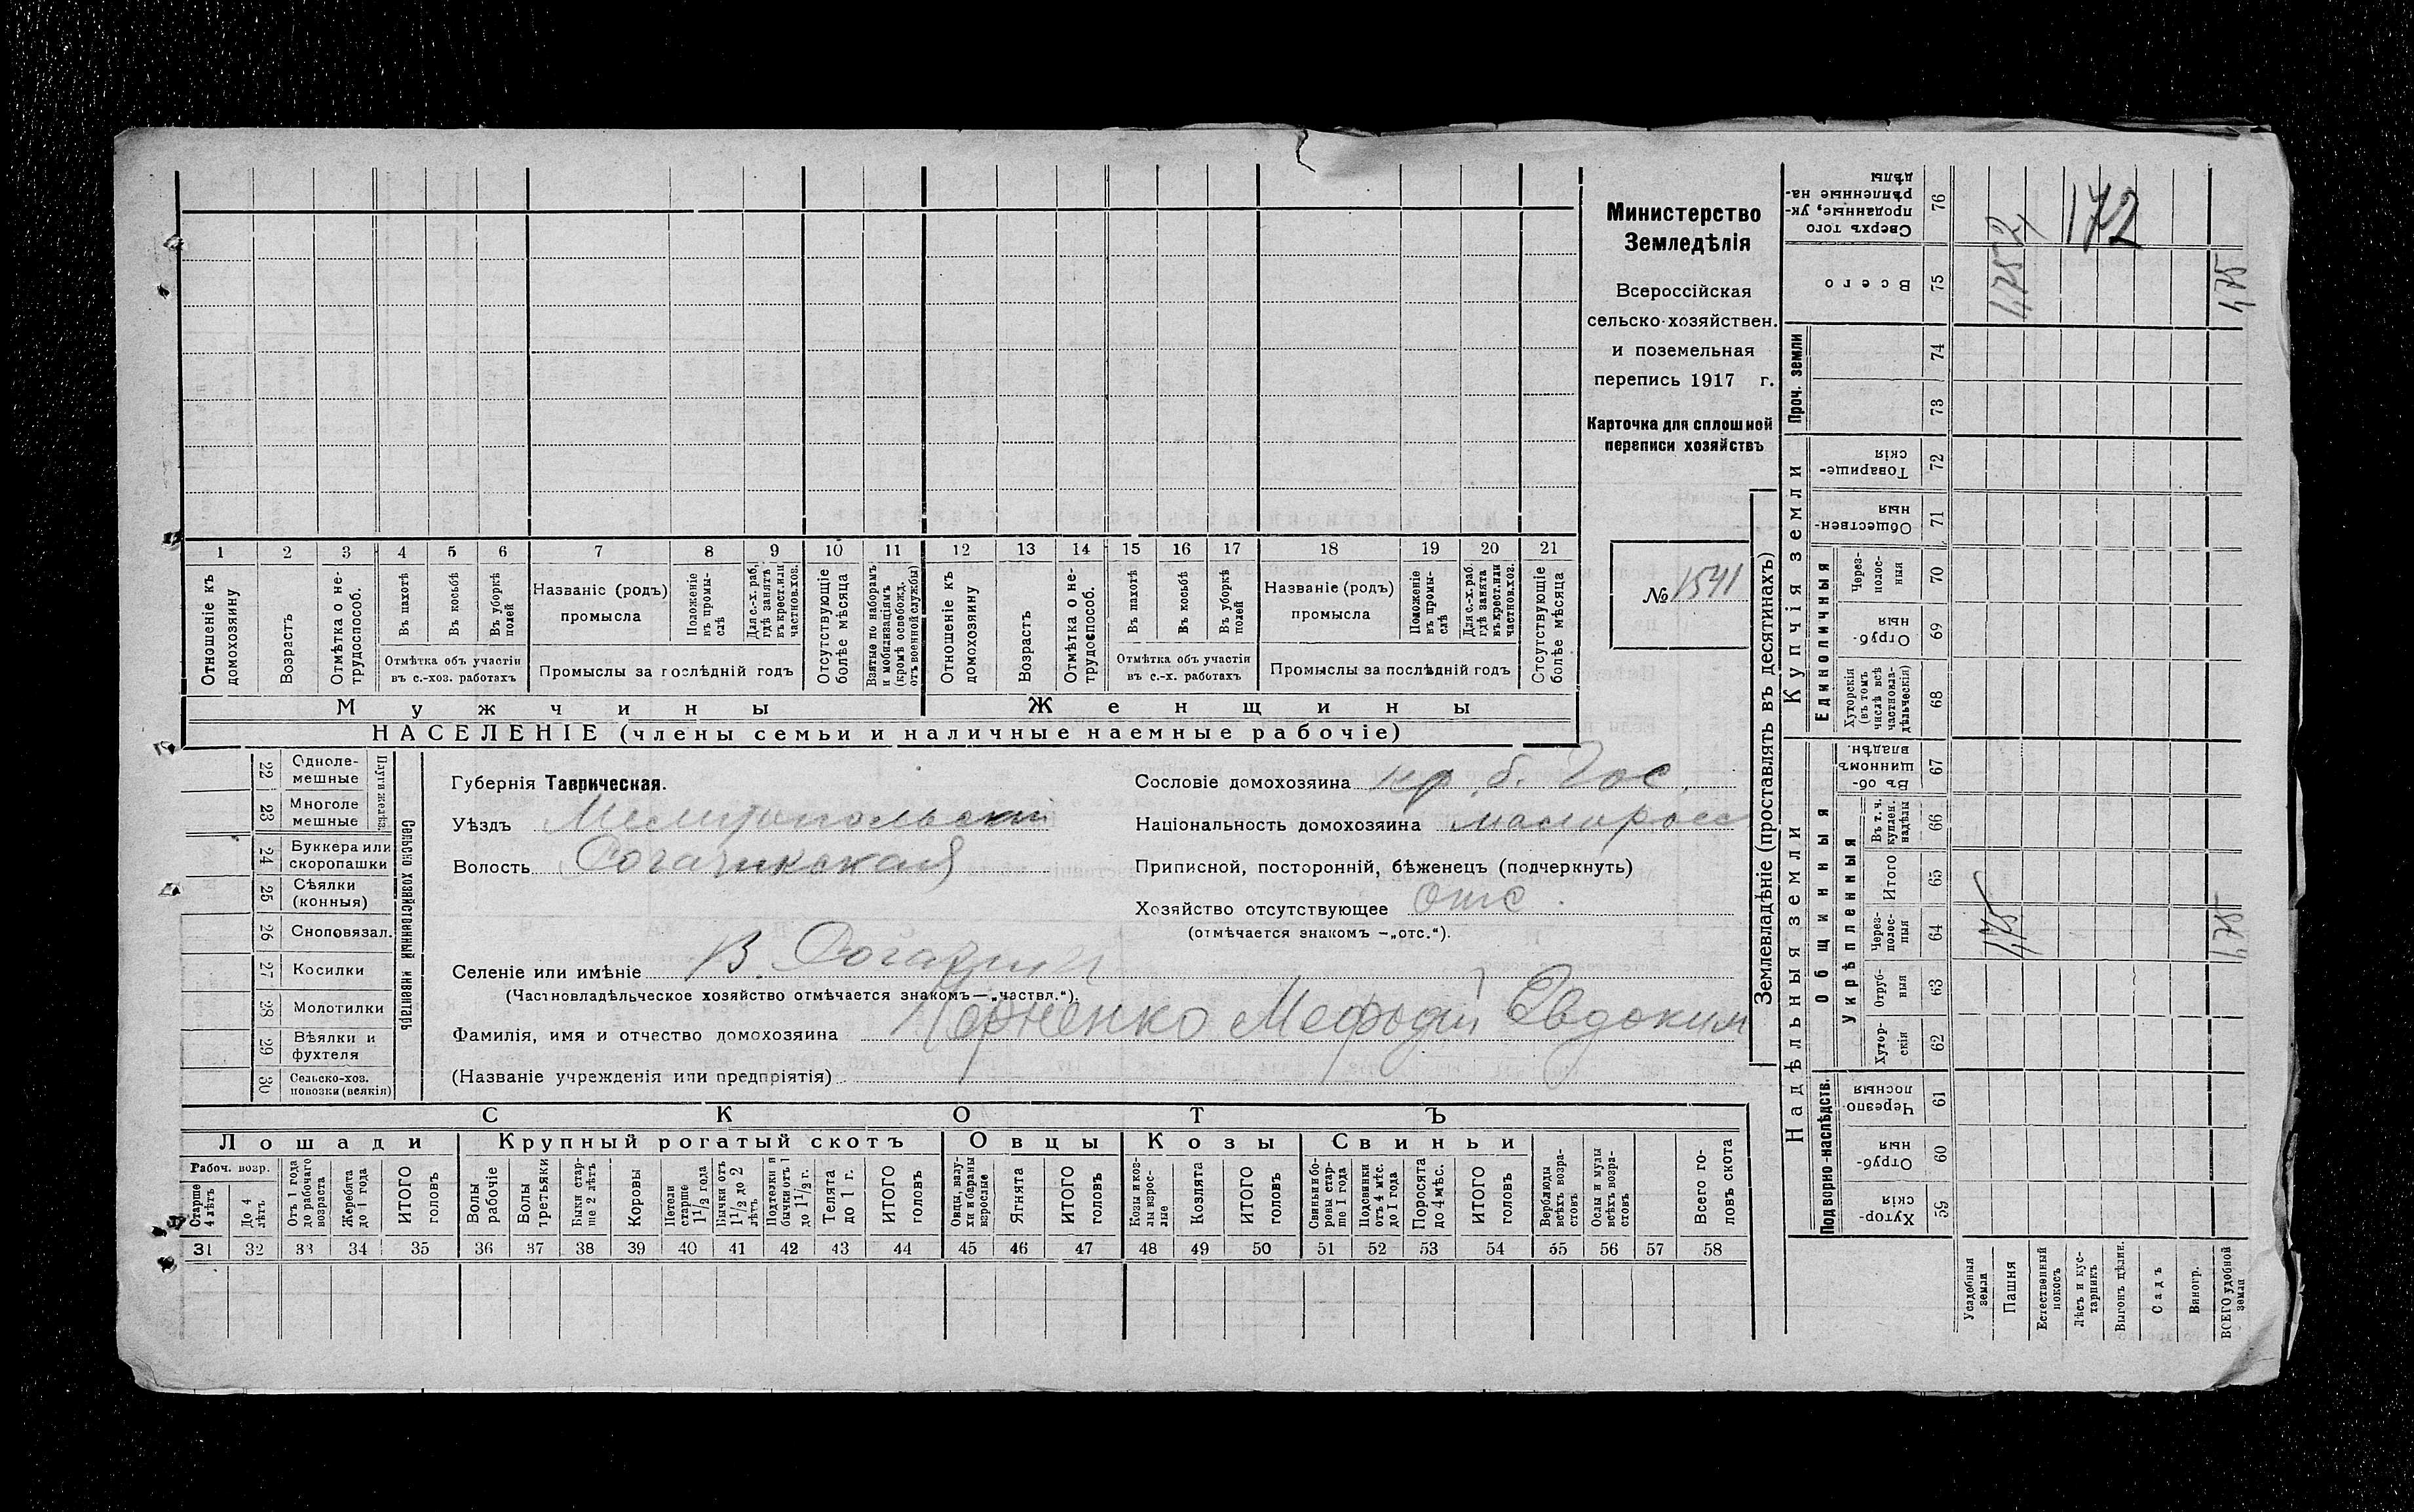 Министерство
Земледѣлія
Всероссійская
сельско-хозяйствен.
и поземельная
перепись 1917 г.
Карточка для сплошной
переписи хозяйствъ
№ 1541
1 2 3 4 5 6 7 8 9 10 11 12 13 14 15 16 17 18 19 20 21
Отношеніе къ домохозяину
Возрастъ
Отмѣтка о не-трудоспособ.
Въ пахотѣ
Въ косьбѣ
Въ уборкѣ полей
Отмѣтка объ участіи
въ с.-хоз. работахъ
Названіе (родъ)
промысла
Положеніе въ промы-слѣ
Для с.-х. раб, гдѣ занятъ въ крест. или частнов.хоз.
Промыслы за послѣдній годъ
Отсутствующіе болѣе мѣсяца
Взятые по наборамъ и мобилизаціямъ (кромѣ освобожд. отъ военной службы)
Отношеніе къ домохозяину
Возрастъ
Отмѣтка о не-трудоспособ.
Въ пахотѣ
Въ косьбѣ
Въ уборкѣ полей
Отмѣтка объ участіи
въ с.-х. работахъ
Названіе (родъ)
промысла
Положеніе въ промы-слѣ
Для с.-х. раб. гдѣ занята въ крест. или частнов.хоз.
Промыслы за послѣдній годъ
Отсутствующіе болѣе мѣсяца
Мужчины Женщины
НАСЕЛЕНІЕ (члены семьи и наличные наемные рабочіе)
22 Однолемешные
23 Многолемешные
Плуги желѣз.
24 Буккера или скоропашки
25 Сѣялки (конныя)
26 Сноповязал.
27 Косилки
28 Молотилки
29 Вѣялки и фухтеля
30 Сельско-хоз. повозки (всякія)
Сельско хозяйственный инвентарь
Губернія Таврическая.
Уѣздъ Мелитопольскій
Волость Рогачикская
Селеніе или имѣніе В. Рогачик
(Частновладѣльческое хозяйство отмѣчается знакомъ—„частвл.“).
Фамилія, имя и отчество домохозяина Черненко Мефодій Евдоким
(Названіе учрежденія или предпріятія)
Сословіе домохозяина кр. б. Гос.
Національность домохозяина малоросс
Приписной, посторонній, бѣженецъ (подчеркнуть)
Хозяйство отсутствующее отс.
(отмѣчается знакомъ —„отс.“).
СКОТЪ
Лошади Крупный рогатый скотъ Овцы Козы Свиньи
Рабоч. возр.
Старше 4 лѣтъ
До 4 лѣтъ
Отъ 1 года до рабочаго возраста
Жеребята до 1 года
ИТОГО головъ
Волы рабочіе
Волы третьяки
Быки старше 2 лѣтъ
Коровы
Нетели старше 1 1/2 года
Бычки отъ 1 1/2 до 2 лѣтъ
Подтелки и бычки отъ 1 до 1 1/2 г.
Телята до 1 г.
ИТОГО головъ
Овцы, валу-хи и бараны взрослые
Ягнята
ИТОГО головъ
Козы и коз-лы взрос-лые
Козлята
ИТОГО головъ
Свиньи и бо-ровы стар-ше 1 года
Подсвинки отъ 4 мѣс. до 1 года
Поросята до 4 мѣс.
ИТОГО головъ
Верблюды всѣхъ возра-стовъ
Ослы и мулы всѣхъ возра-стовъ
Всего го-ловъ скота
31 32 33 34 35 36 37 38 39 40 41 42 43 44 45 46 47 48 49 50 51 52 53 54 55 56 57 58
Землевладѣніе (проставлять въ десятинахъ)
Сверхъ того проданные, ук-рѣпленные на-дѣлы 76
172
Всего 75
4,75
4,75
Проч. земли
74
73
Купчія земли
Товарище-скія 72
Обществен-ныя 71
Единоличныя
Через-полос-ныя 70
Отруб-ныя 69
Хуторскія (въ томъ числѣ всѣ частновла-дѣльческія) 68
Надѣльныя земли
Общинныя
Въ об-щинномъ владѣн. 67
Укрѣпленныя
Въ т. ч. куплен. надѣлы 66
Итого 65
Через-полос-ныя 64
4,75
4,75
Отруб-ныя 63
Хутор-скія 62
Подворно-наслѣдств.
Черезпо-лосныя 61
Отруб-ныя 60
Хутор-скія 59
Усадебныя земли
Пашня
Естественный покосъ
Лѣсъ и кус-тарникъ
Выгонъ цѣлин.
Садъ
Виногр.
ВСЕГО удобной земли